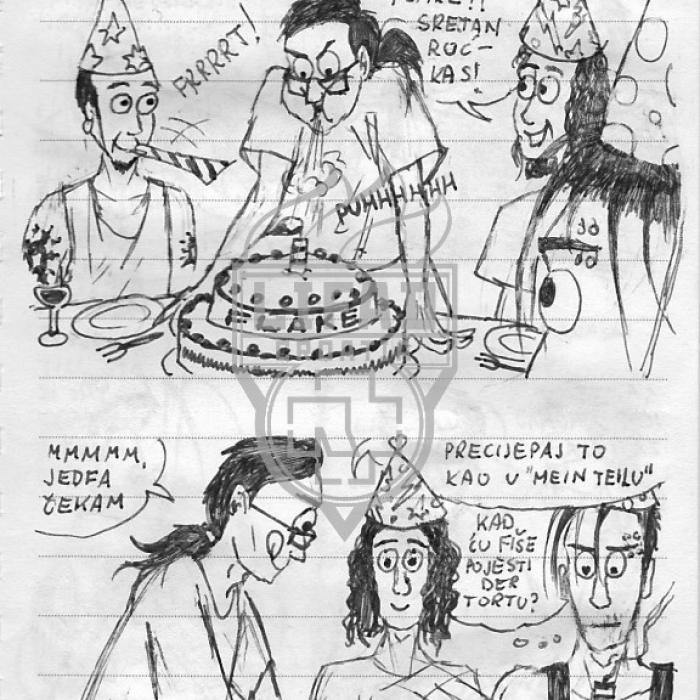 FRRRRT!
SRETAN
ROĆ-
KAS!
PUHHHHHH
FLAKE
MMMMM,
JEDFA
ČEKAM
PRECIJEPAJ TO
KAO U "MEIN TEILU"
KAD
ĆU FIŠE
POJESTI
DER
TORTU?